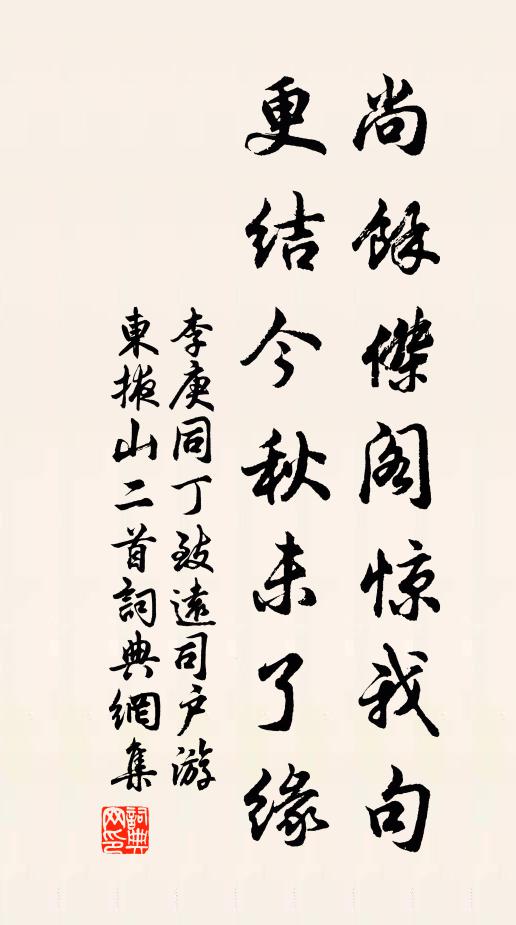 尚餘傑阁惊我句
更结今秋未了緣
李庚同丁致遠司户游
東掖山二首詞典網集
詞典
网印